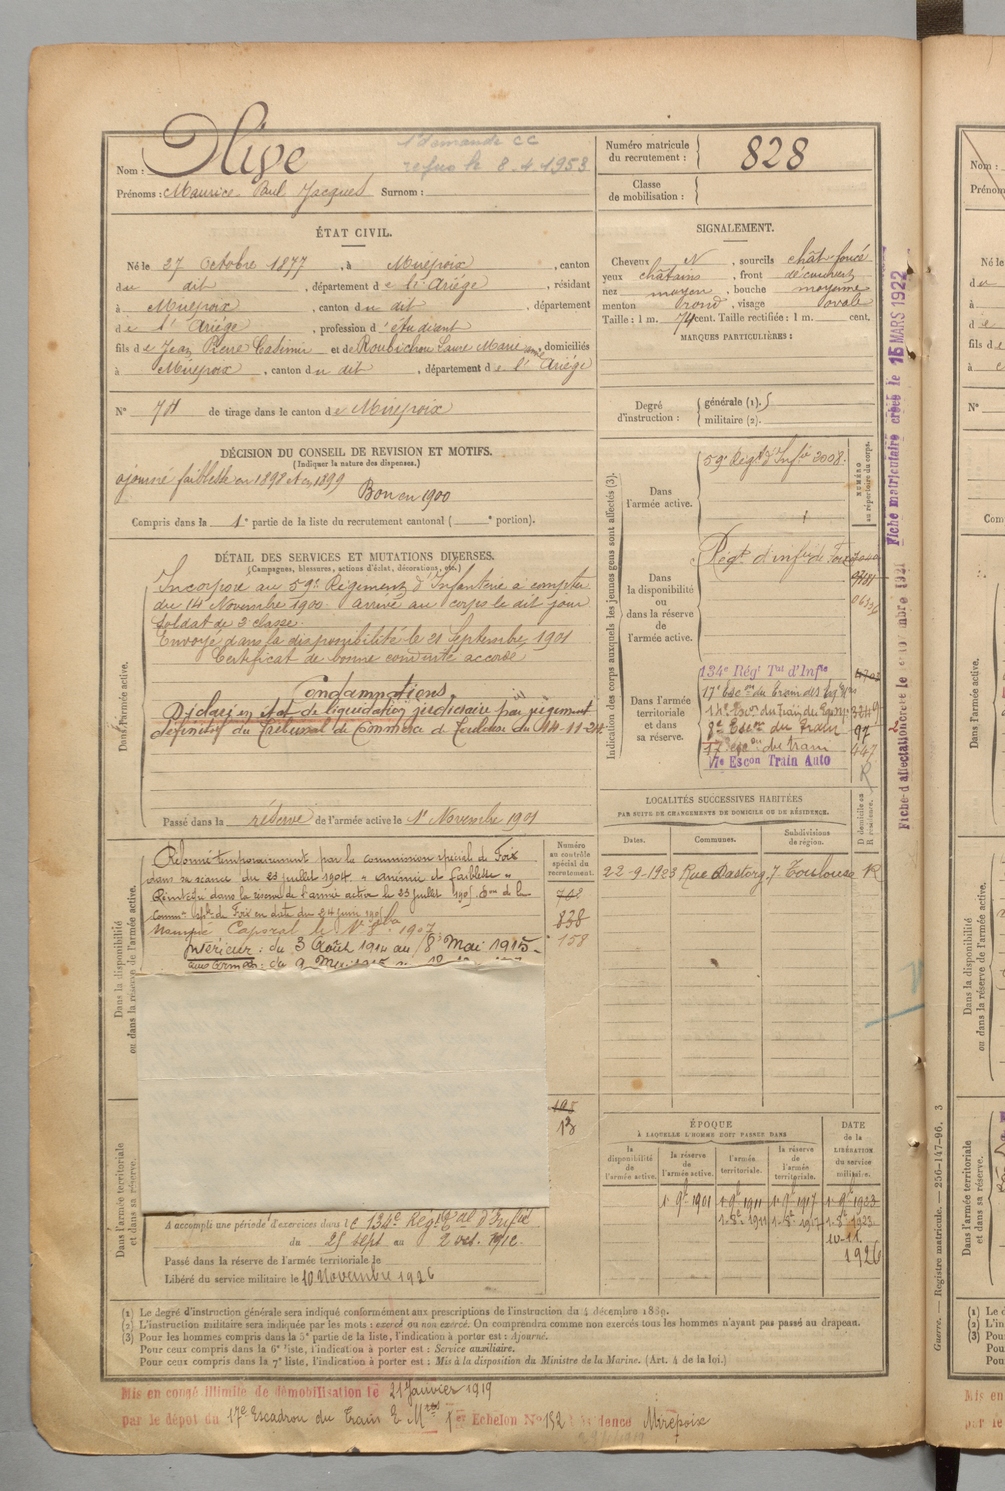 Nom : Olive
1e demande CC
refus le 8.4.1953
Prénoms : Maurice Paul Jacques Surnom :
Numéro matricule
du recrutement : 828
Classe
de mobilisation :
ÉTAT CIVIL.
Né le 27 Octobre 1877, à Mirepoix, canton
du dit, département de l'Ariège, résidant
à Mirepoix, canton du dit, département
de l'Ariège, profession d'étudiant
fils de Jean Pierre Casimir et de Roubichou Laure Marie, domiciliés
à Mirepoix, canton du dit, département de l'Ariège
N° de tirage dans le canton de Mirepoix
SIGNALEMENT.
Cheveux N, sourcils chât foncé
yeux châtains, front découvert
nez moyen, bouche moyenne
menton rond, visage ovale
Taille : 1 m. 74 cent. Taille rectifiée : 1 m. cent.
MARQUES PARTICULIÈRES :
Degré
d'instruction :
générale (1).
militaire (2).
DÉCISION DU CONSEIL DE REVISION ET MOTIFS.
(Indiquer la nature des dispenses.)
ajourné faiblesse en 1898 et en 1899
Bon en 1900
Compris dans la 1e partie de la liste du recrutement cantonal ( e portion).
DÉTAIL DES SERVICES ET MUTATIONS DIVERSES.
(Campagnes, blessures, actions d'éclat, décorations, etc.)
Dans l'armée active.
Incorporé au 59e Régiment d'Infanterie à compter
du 14 Novembre 1900. Arrivé au corps le dit jour
Soldat de 2 classe.
Envoyé dans la disponibilité le 21 Septembre 1901
Certificat de bonne conduite accordé
Condamnations.
Déclaré en état de liquidation judiciaire par jugement
définitif du Tribunal de Commerce de Toulouse du 14-11-24
Passé dans la réserve de l'armée active le 1r Novembre 1901
Dans la disponibilité
ou dans la réserve de l'armée active.
Réformé temporairement par la commission spéciale de Foix
dans sa séance du 23 juillet 1904. "anémie et faiblesse"
Réintégré dans la réserve de l'armée active le 23 juillet 1905.
de Foix en date du 24 juin 1905
Nommé Caporal le 1907
Intérieur : du 3 Août 1914 au 8 Mai 1915
Numéro
au contrôle
spécial du
recrutement.
838
158
195
13
Dans l'armée territoriale
et dans sa réserve.
A accompli une période d'exercices dans le 134e Régt al d'Infie
du 25 sept au 2 oct. 1912
Passé dans la réserve de l'armée territoriale le
Libéré du service militaire le 10 Novembre 1926
Indication des corps auxquels les jeunes gens sont affectés (3).
Dans
l'armée active.
59e Régt d'Infie 3008.
NUMÉRO
au répertoire du corps.
Dans
la disponibilité
ou
dans la réserve
de
l'armée active.
Régt d'infie de Foix
Dans l'armée
territoriale
et dans
sa réserve.
134e Régt Tal d'Infie
17e Escon du Train des Eq.
du Train des Equip.
8e Escon du Train 97
17 Escon du train 447
17e Escon Train Auto R
Fiche matriculaire créée le 15 MARS 1922
LOCALITÉS SUCCESSIVES HABITÉES
PAR SUITE DE CHANGEMENTS DE DOMICILE OU DE RÉSIDENCE.
Dates.
Communes.
Subdivisions
de région.
D domicile ou
R résidence.
22-9-1923 Rue Pastorg, 7 Toulouse R
ÉPOQUE
À LAQUELLE L'HOMME DOIT PASSER DANS
DATE
de la
LIBÉRATION
du service
militaire.
la
disponibilité
de
l'armée active.
la réserve
de
l'armée active.
l'armée
territoriale.
la réserve
de
l'armée
territoriale.
1r 9b 1901 1r 9b 1911 1r 9b 1917 1r 9b 1923
10-11
1926
(1) Le degré d'instruction générale sera indiqué conformément aux prescriptions de l'instruction du 4 décembre 1889.
(2) L'instruction militaire sera indiquée par les mots : exercé ou non exercé. On comprendra comme non exercés tous les hommes n'ayant pas passé au drapeau.
(3) Pour les hommes compris dans la 5e partie de la liste, l'indication à porter est : Ajourné.
Pour ceux compris dans la 6e liste, l'indication à porter est : Service auxiliaire.
Pour ceux compris dans la 7e liste, l'indication à porter est : Mis à la disposition du Ministre de la Marine. (Art. 4 de la loi.)
Mis en congé illimité de démobilisation le 21 Janvier 1919
par le dépôt du 17e Escadron du Train Echelon No 152 Mirepoix
Guerre. — Registre matricule. — 256-147-96. 3